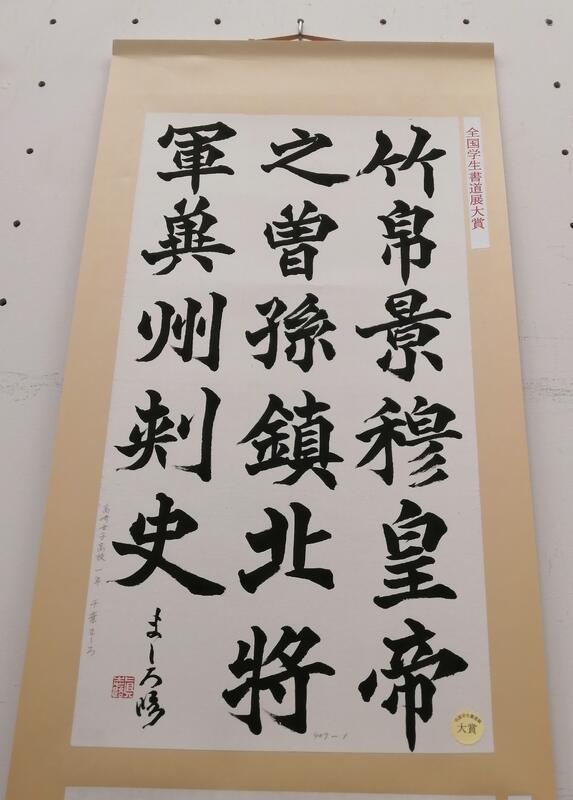 全国学生書道展大賞
竹帛景穆皇帝
之曽孫鎮北将
軍冀州刺史
ましろ臨
高崎女子高校一年 千葉ましろ
大賞